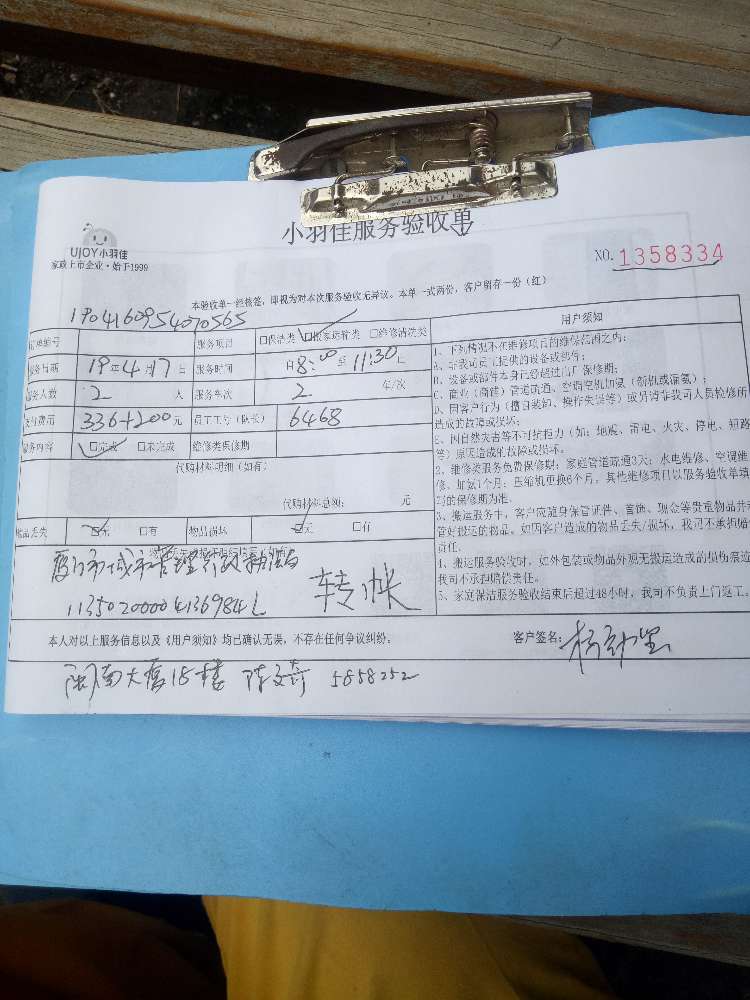 小羽佳服务验收单
UJOY小羽佳
家政上市企业·始于1999
NO. 1358334
本验收单一经核签，即视为对本次服务验收无异议。本单一式两份，客户留存一份（红）
1904160954070565
订单编号 服务项目 □保洁类 □搬家运输类 □维修清洗类
服务日期 19年4月17日 服务时间 自8:00至11:30止
服务人数 2 人 服务车次 2 车/次
支付费用 336+200元 员工工号（队长） 6468
服务内容 □完成 □未完成 维修类保修期
代购材料明细（如有）
代购材料总额： 元
物品丢失 □无 □有 物品损坏 □无 □有
厦门市城市管理行政执法局
转帐
本人对以上服务信息以及《用户须知》均已确认无误，不存在任何争议纠纷。
客户签名：
闽南大厦18楼 5858252
用户须知
1、下列情况不在维修项目的维保范围之内：
A、非我司员工提供的设备或部件；
B、设备或部件本身已经超过出厂保修期；
C、商业（商铺）管道疏通、空调空机加氨（新机或漏氨）；
D、因客户行为（擅自装卸、操作失误等）或另请非我司人员检修所
造成的故障或损坏；
E、因自然灾害等不可抗拒力（如：地震、雷电、火灾、停电、短路
等）原因造成的故障或损坏。
2、维修类服务免费保修期：家庭管道疏通3天；水电维修、空调维
修、加氨1个月；压缩机更换6个月，其他维修项目以服务验收单填
写的保修期为准。
3、搬运服务中，客户应随身保管证件、首饰、现金等贵重物品并
管好搬运的物品，如因客户造成的物品丢失/损坏，我司不承担赔
责任。
4、搬运服务验收时，如外包装或物品外观无搬运造成的损伤痕迹
我司不承担赔偿责任。
5、家庭保洁服务验收结束后超过48小时，我司不负责上门返工。